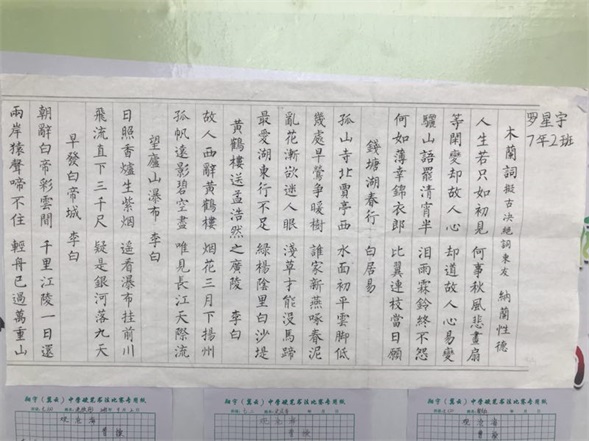 罗星宇
7年2班
木蘭詞 擬古決絕詞柬友 納蘭性德
人生若只如初見 何事秋風悲畫扇
等閑變却故人心 却道故人心易變
驪山語罷清宵半 泪雨霖鈴終不怨
何如薄幸錦衣郎 比翼連枝當日願
錢塘湖春行 白居易
孤山寺北賈亭西 水面初平雲脚低
幾處早鶯争暖樹 誰家新燕啄春泥
亂花漸欲迷人眼 淺草才能没馬蹄
最愛湖東行不足 緑楊陰里白沙堤
黄鶴樓送孟浩然之廣陵 李白
故人西辭黄鶴樓 烟花三月下揚州
孤帆遠影碧空盡 唯見長江天際流
望廬山瀑布 李白
日照香爐生紫烟 遥看瀑布挂前川
飛流直下三千尺 疑是銀河落九天
早發白帝城 李白
朝辭白帝彩雲間 千里江陵一日還
兩岸猿聲啼不住 輕舟已過萬重山
中學硬笔书法比赛专用纸
中學硬笔书法比赛专用纸
中學硬笔书法比赛专用纸
观沧海
观沧海
观沧海